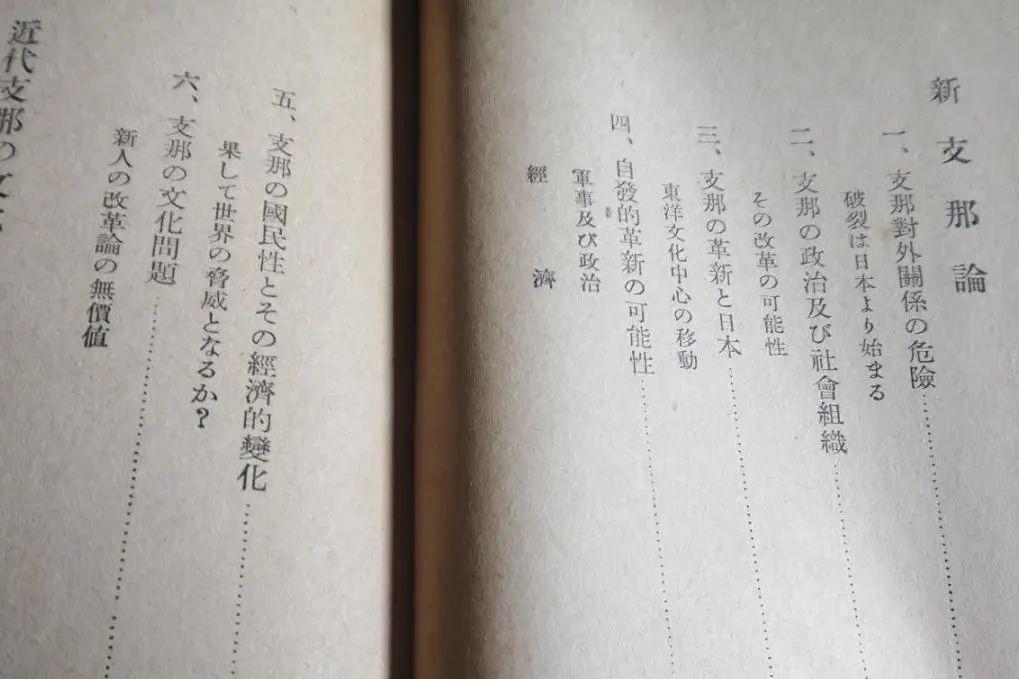 新支那論
一、支那對外關係の危險
破裂は日本より始まる
二、支那の政治及び社會組織
その改革の可能性
三、支那の革新と日本
東洋文化中心の移動
四、自發的革新の可能性
軍事及び政治
經濟
五、支那の國民性とその經濟的變化
果して世界の脅威となるか?
六、支那の文化問題
新人の改革論の無價値
近代支那の文